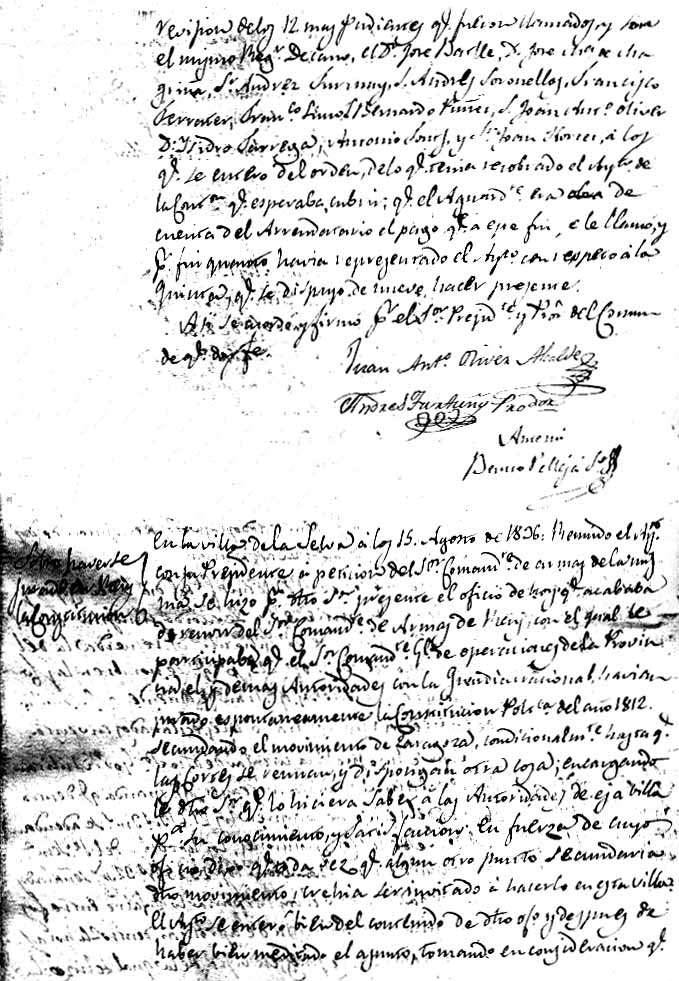 revision de los 12 mas pudientes qe. fueron llamados, y son
el mismo Regr. Decano, el Dr. Jose Batlle, D. Jose
Sr. Andres Furtuny, S. Andres Coronellos, Francisco
Ferrater, Franco. Simo, Bernardo S. Juan Anto. Oliver
D. Isidro Ferrega, Antonio y Juan á los
qe. se entero del orden, de lo qe. tenia recobrado el Aytо. de
la qe. esperaba cubrir; qe. el Aguardte. era de
cuenta del Arrendatario el pago qe. a ese fin, se le llamó, y
pr. fin quanto havia representado el Ayto. con respecto á la
Quinta, qe. se dispuso de nuevo hacer presente.
Asi se acordo y firmo pr. el Sor. Presidte. y Pror. del Comun
de qe. doy fe.
Juan Anto. Oliver Alcalde
Andres Furtuny Prodor
Ante mi
Pellejá Srio
En la villa de la Selva á los 15. Agosto de 1836: Reunido el Ayto.
Sobre haverse
con su Presidente á peticion del Sor. Comandte. de armas de la mis
jurado en Reus
ma, se hizo pr. dho Sr. presente el oficio de hoy qe. acababa
la Constitucion
de recivir del Sor. Comandte. de Armas de Reus, con el qual se
participaba qe. el Sor. Comandte. Gl. de operaciones de la Provin
cia, el y demas Autoridades con la Guardia nacional, havian
jurado espontaneamente la Constitucion Politca. del año 1812.
secundando el movimiento de Zaragoza, condicionalmte. hasta qe.
las Cortes se reunan, y dispongan otra cosa; encargando
le dho Sr. qe. lo hiciera saber á las Autoridades de esa villa
pa. su conocimiento, y satisfaccion: En fuerza de cuyo
oficio dixo qe. cada vez qe. algun otro punto secundaria
dho movimiento, crehia ser invitado á hacerlo en esta villa.
El Ayto. se enteró bien del contenido de dho ofo. y despues de
haber bien meditado el asunto, tomando en consideracion qe.